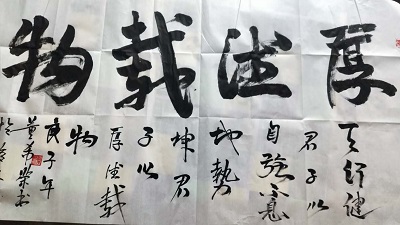 厚德载物
天行健
君子以
自强不息
地勢
坤君
子以
厚德载
物
庚子年